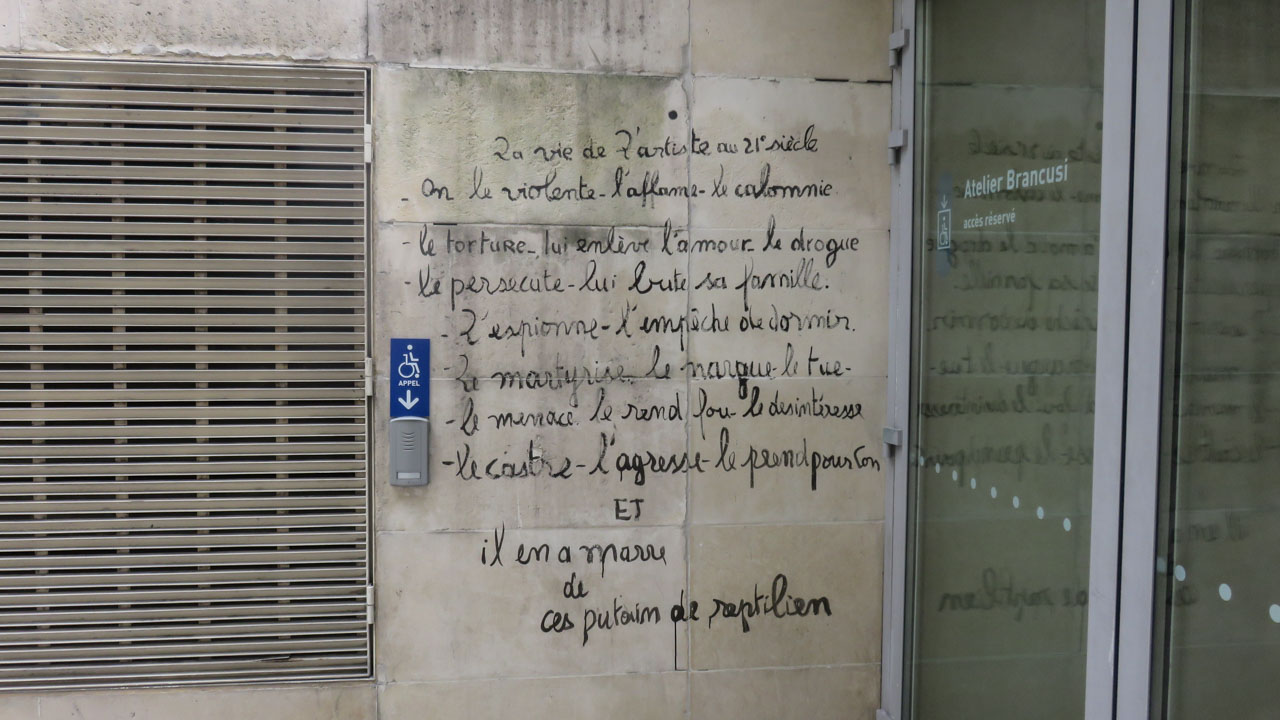 La vie de L'artiste au 21e siècle
- on le violente - l'aflame - le calomnie
- le torture - lui enlève l'amour - le drogue
- le persecute - lui bute sa famille.
- L'espionne - l'empêche de dormir.
- Le martyrise - le nargue - le tue -
- le menace le rend fou - le desintéresse
- le castre - l'agresse - le prend pour con
ET
il en a marre
de
ces putain de reptilien
APPEL
Atelier Brancusi
accès réservé